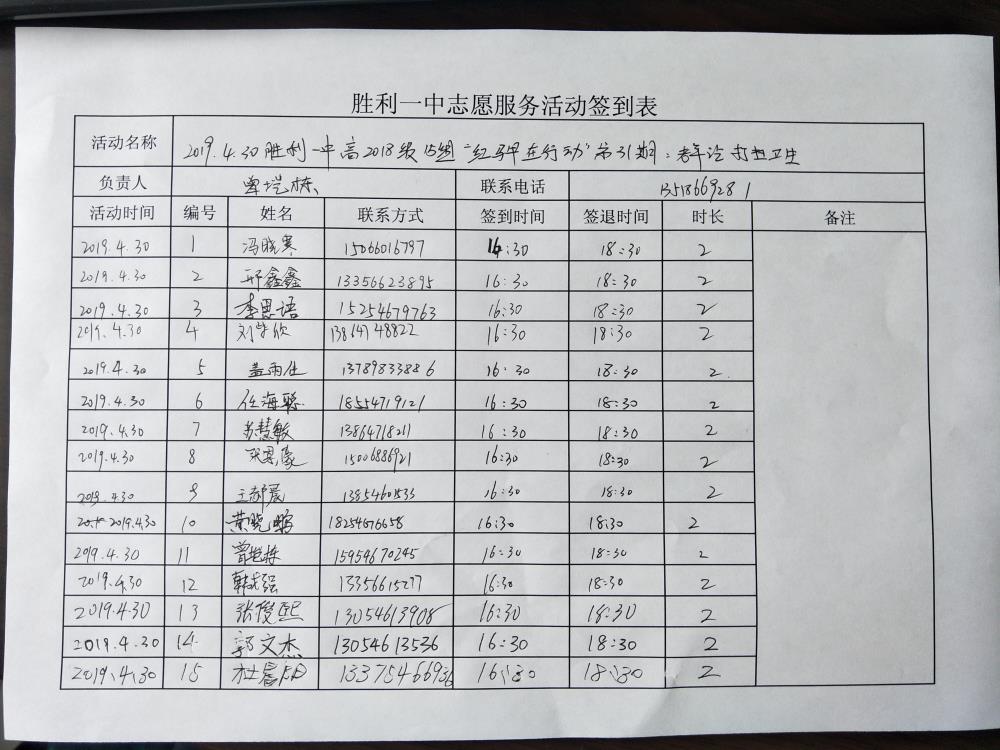 胜利一中志愿服务活动签到表
活动名称 2019.4.30胜利一中高2018级15组"红马甲在行动"第31期:老年论打扫卫生
负责人 曾垲栋 联系电话 1351866928 1
活动时间 编号 姓名 联系方式 签到时间 签退时间 时长 备注
2019.4.30 1 冯晓寒 15066016797 16:30 18:30 2
2019.4.30 2 邢鑫鑫 13356623895 16:30 18:30 2
2019.4.30 3 李思语 15254679763 16:30 18:30 2
2019.4.30 4 刘学欣 13864748822 16:30 18:30 2
2019.4.30 5 盖雨仕 13789833886 16:30 18:30 2
2019.4.30 6 任海聪 18554719121 16:30 18:30 2
2019.4.30 7 苏慧敏 13864718211 16:30 18:30 2
2019.4.30 8 15006886921 16:30 18:30 2
2019.4.30 9 王郝晨 13854601533 16:30 18:30 2
2019.4.30 10 黄晓鹏 18254676658 16:30 18:30 2
2019.4.30 11 曾垲栋 15954670245 16:30 18:30 2
2019.4.30 12 韩志强 13356615277 16:30 18:30 2
2019.4.30 13 张俊熙 13054613908 16:30 18:30 2
2019.4.30 14 郭文杰 13054613536 16:30 18:30 2
2019.4.30 15 杜晨阳 13375466936 16:30 18:30 2